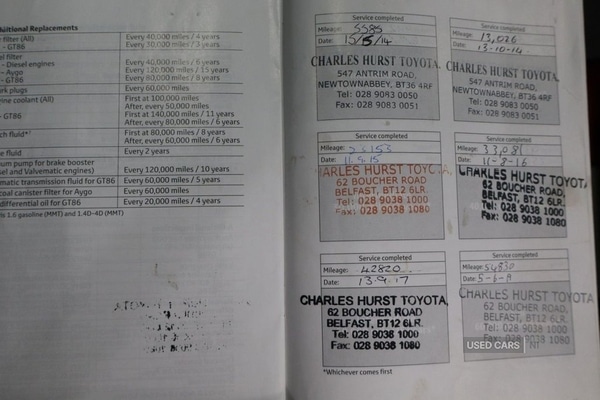 Additional Replacements
filter (All) Every 40,000 miles / 4 years
- GT86 Every 30,000 miles / 3 years
el filter
- Diesel engines Every 40,000 miles / 6 years
- Aygo Every 120,000 miles / 15 years
- GT86 Every 80,000 miles / 8 years
rk plugs Every 60,000 miles
ine coolant (All) First at 100,000 miles
After, every 50,000 miles
- GT86 First at 140,000 miles / 11 years
After, every 80,000 miles / 6 years
ch fluid*¹ First at 80,000 miles / 8 years
After, every 60,000 miles / 6 years
e fluid Every 2 years
uum pump for brake booster
sel and Valvematic engines) Every 120,000 miles / 10 years
matic transmission fluid for GT86 Every 60,000 miles / 5 years
coal canister filter for Aygo Every 60,000 miles
differential oil for GT86 Every 20,000 miles / 4 years
1.6 gasoline (MMT) and 1.4D-4D (MMT)
Service completed
Mileage: 5585
Date: 15/5/14
CHARLES HURST TOYOTA
547 ANTRIM ROAD,
NEWTOWNABBEY, BT36 4RF
Tel: 028 9083 0050
Fax: 028 9083 0051
Service completed
Mileage: 13,026
Date: 13-10-14
CHARLES HURST TOYOTA
547 ANTRIM ROAD,
NEWTOWNABBEY, BT36 4RF
Tel: 028 9083 0050
Fax: 028 9083 0051
Service completed
Mileage:
Date: 11.9.15
ARLES HURST TOYOT
62 BOUCHER ROAD
BELFAST, BT12 6LR.
Tel: 028 9038 1000
Fax: 028 9038 1080
Service completed
Mileage: 33,081
Date: 11-8-16
CHARLES HURST TOYOTA
62 BOUCHER ROAD
BELFAST, BT12 6LR.
Tel: 028 9038 1000
Fax: 028 9038 1080
Service completed
Mileage: 42820
Date: 13.9.17
CHARLES HURST TOYOTA
62 BOUCHER ROAD
BELFAST, BT12 6LR.
Tel: 028 9038 1000
Fax: 028 9038 1080
Service completed
Mileage: 54830
Date: 5-6-19
CHARLES HURST TOYOTA
62 BOUCHER ROAD
BELFAST, BT12 6LR.
Tel: 028 9038 1000
Fax: 028 9038 1080
USED CARS NI
*Whichever comes first